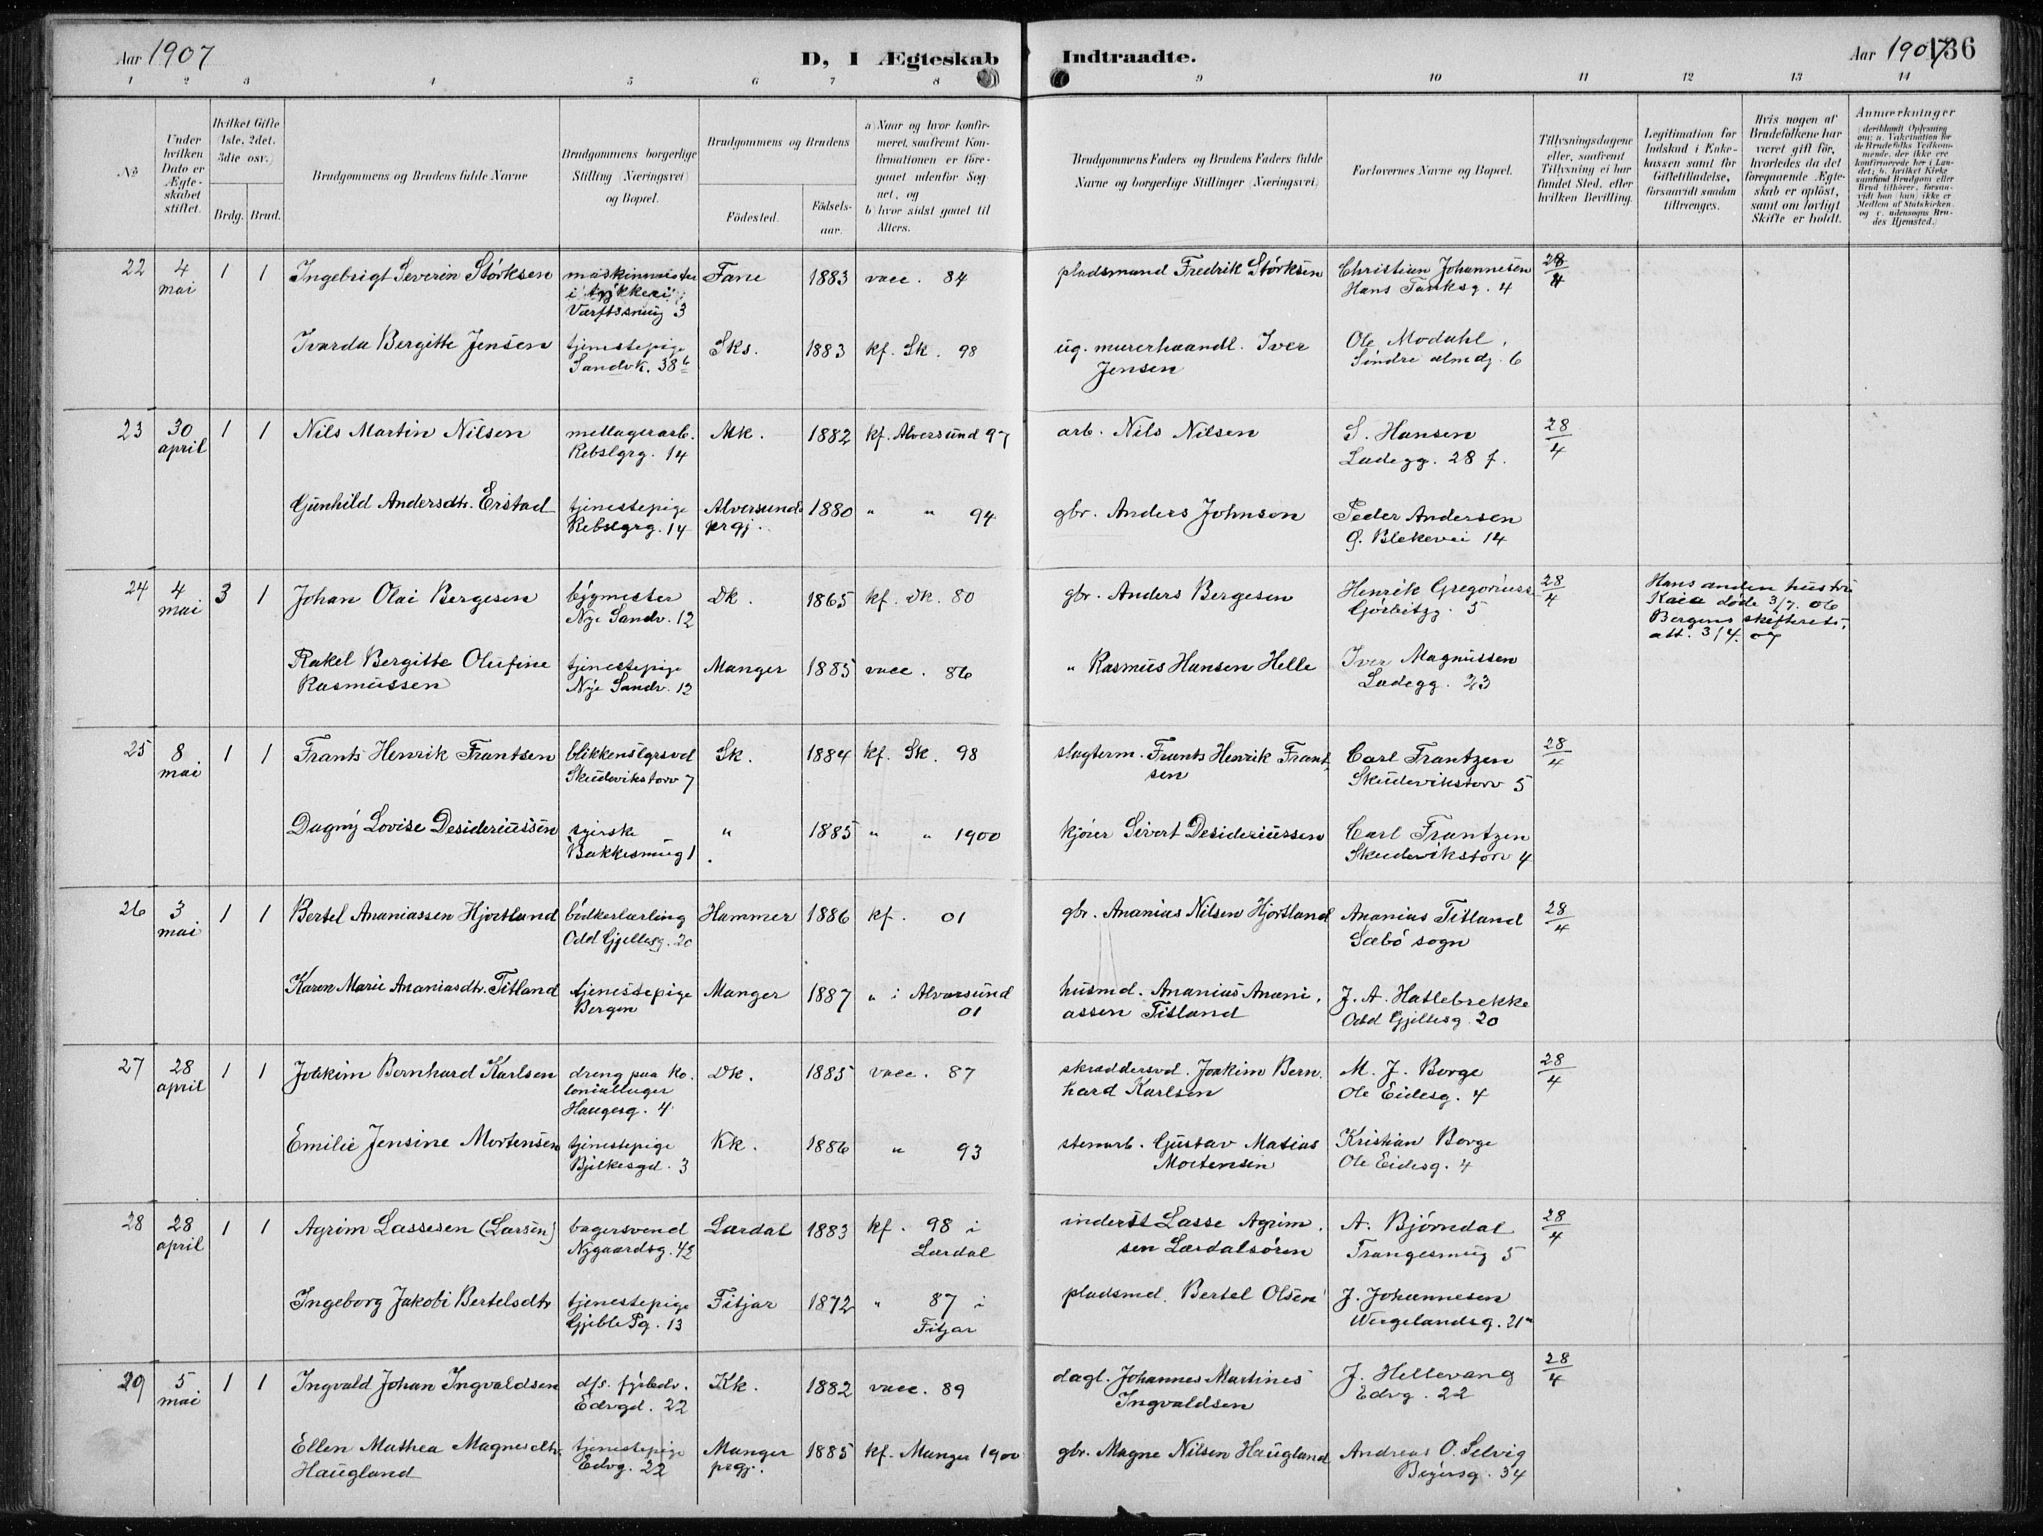 Aar 1907
D, I Ægteskab Indtraadte.
Aar 1907
136
1 2 3 4 5 6 7 8 9 10 11 12 13 14
No
Under hvilken Dato er Ægteskabet stiftet.
Hvilket Gifte (1ste, 2det, 3die osv.)
Brdg. Brud.
Brudgommens og Brudens fulde Navne
Brudgommens borgerlige Stilling (Næringsvei) og Bopæl.
Brudgommens og Brudens
Födested.
Födsels-aar.
a) Naar og hvor konfirmeret, saafremt Konfirmationen er foregaaet udenfor Sognet, og
b) hvor sidst gaaet til Alters.
Brudgommens Faders og Brudens Faders fulde Navne og borgerlige Stillinger (Næringsvei)
Forlovernes Navne og Bopæl.
Tillysningsdagene eller, saafremt Tillysning ei har fundet Sted, efter hvilken Bevilling.
Legitimation for Indskud i Enkekassen samt for Giftetilladelse, forsaavidt saadan tiltrænges.
Hvis nogen af Brudefolkene har været gift för, hvorledes da det foregaaende Ægteskab er oplöst, samt om lovligt Skifte er holdt.
Anmærkninger
22 4 mai 1 1 Ingebrigt Severin Störksen maskinmester Fane 1883 vacc. 84 pladsmand Fredrik Störksen Christian Johannesen 28/4
i trykkeri Hans Tanksg. 4
Værftssmug 3
Ivarda Bergitte Jensen tjenestepige Sks. 1883 kf. Sk. 98 ug. murerhaandl. Iver Ole Modahl,
Sandvk. 38 b Jensen Söndre almdg. 6
23 30 april 1 1 Nils Martin Nilsen mellagerarb. Mk. 1882 kf. Alversund 97 arb. Nils Nilsen S. Hansen 28/4
Rebslgrg. 14 Ladegg. 28 f.
Gunhild Andersdtr. Erstad tjenestepige Alversunds 1880 " " 94 gbr. Anders Johnson Peder Andersen
Rebslgrg. 14 prgj. G. Blekevei 14
24 4 mai 3 1 Johan Olai Bergesen bygmester Dk. 1865 kf. Dk. 80 gbr. Anders Bergesen Henrik Gregoriuss. 28/4 Hans anden hustru
Nye Sandv. 12 5 Kaia döde 3/7. 06
Bergens skifterets
att. 3/4. 07
Rakel Bergitte Olufine tjenestepige Manger 1885 vacc. 86 " Rasmus Hansen Helle Iver Magnussen
Rasmussen Nye Sandv. 12 Ladegg. 23
25 8 mai 1 1 Frants Henrik Frantsen blikkenslgrsvd Sk. 1884 kf. Sk. 98 slagterm. Frants Henrik Frant- Carl Frantzen 28/4
Skudevikstorv 7 sen Skudevikstorv 5
Dagny Lovise Desideriussen syerske " 1885 " " 1900 kjörer Sivert Desideriussen Carl Frantzen
Bakkesmug 1 Skudevikstorv 4
26 3 mai 1 1 Bertel Ananiassen Hjortland bödkerlærling Hammer 1886 kf. 01 gbr. Ananias Nilsen Hjortland Ananias Titland 28/4
Odd Gjellesg. 20 Sæbö sogn
Karen Marie Ananiasdtr. Titland tjenestepige Manger 1887 " i Alversund husmd. Ananias Anani- J. A. Hatlebrekke
Bergen 01 assen Titland Odd Gjellesg. 20
27 28 april 1 1 Joakim Bernhard Karlsen dreng paa ko- Dk. 1885 vacc. 87 skræddersvd. Joakim Bern- M. J. Borge 28/4
loniallager hard Karlsen Ole Eidesg. 4
Haugesg. 4
Emilie Jensine Mortensen tjenestepige Kk. 1886 " 93 stenarb. Gustav Matias Kristian Borge
Bjelkesgd. 3 Mortensen Ole Eidesg. 4
28 28 april 1 1 Agrim Lassesen (Larsen) bagersvend Lærdal 1883 kf. 98 i inderst Lasse Agrim- A. Björndal 28/4
Nygaardsg. 42 Lærdal sen Lærdalsören Trangesmug 5
Ingeborg Jakobi Bertelsdtr tjenestepige Fitjar 1872 " 87 i pladsmd. Bertel Olsen J. Johannesen
13 Fitjar Wergelandsg. 21 a
29 5 mai 1 1 Ingvald Johan Ingvaldsen dfs. fyrbdr. Kk. 1882 vacc. 89 dagl. Johannes Martines J. Hellevang 28/4
Edvgd. 22 Ingvaldsen Edvg. 22
Ellen Mathea Magnesdtr tjenestepige Manger 1885 kf. Manger 1900 gbr. Magne Nilsen Haugland Andreas O. Selvig
Haugland Edvg. 22 prgj. 34